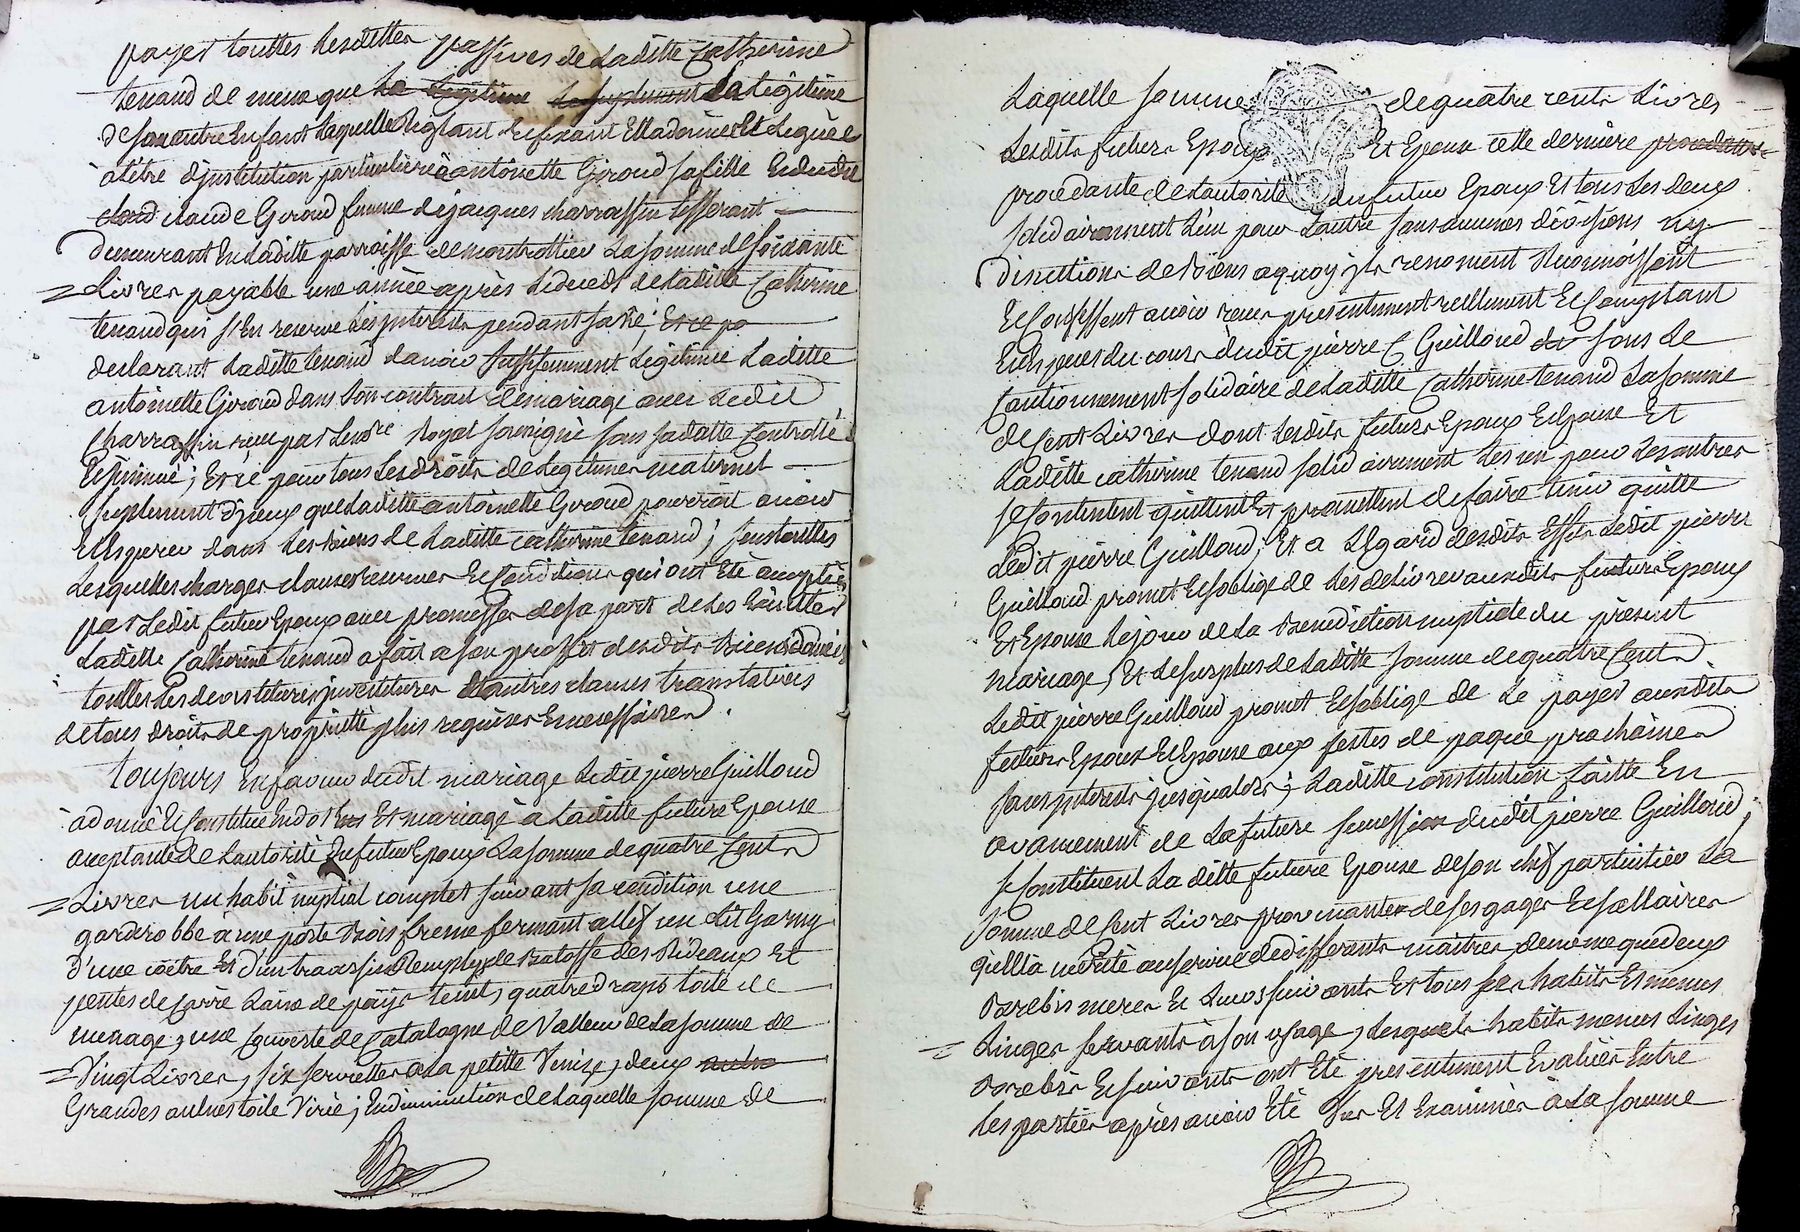 payer touttes lesdittes passives de laditte Catherine
tenaud de meme que la legitime
de son autre Enfant laquelle Reglant et fixant Ella donne Et legue
à titre d'institution particuliere à antoinette Giroud sa fille
claude Giroud femme de jacques charrassin
demeurant En laditte parroisse de montrottier La somme de soixante
Livres payable une année après le deceds de laditte Catherine
tenaud qui s'En reserve les jnterets pendant sa vie; Et ce po
declarant laditte tenaud d'avoir suffisemment Legitimé Laditte
antoinette Giroud dans son contract de mariage avec Ledit
Charrassin receu par Lenore Royal soussigné sous sa datte Controllé
Et jnsinué; Et ce pour tous les droits de Legitimes maternel
suplement d'jceux que laditte antoinette Giroud pourroit avoir
Et Esperer dans les biens de laditte catherine tenaud; sous touttes
Lesquelles charges clauses reserves Et Conditions qui ont Eté acceptées
par Ledit futur Epoux avec promesses de sa part de les Executer
Laditte Catherine tenaud a fait a son proffit desdits Biens donnés
touttes les devestitures jnvestitures Et autres clauses translatives
de tous droits de propriette plus requises Et necessaires.
toujours En faveur dudit mariage Ledit pierre Guilloud
à donné Et Constitué En dot Et mariage à Laditte future Epouse
acceptante de L'autorité du futur Epoux La somme de quatre Cents
Livres un habit nuptial complet suivant sa condition une
garderobbe à une porte Bois frene fermant a clef un Lit Garny
d'une coètre Et d'un traversin Remplys de Balosse des Rideaux Et
pentes de sarre Laine de päys teint, quatre draps toile de
menage, une Couverte de Catalogne de Valleur de La somme de
Vingt Livres, six serviettes a La petitte Venize, deux
Grandes aulnes toile Virié; En diminution de Laquelle somme de
Laquelle somme de quatre cents Livres
Lesdits futurs Epoux Et Epouse cette derniere
procedante de L'autorité du futur Epoux Et tous les deux
solidairement L'un pour L'autre sans aucunes divisions ny
discutions de Biens aquoy jls renoncent Reconnoissent
Et Confessent avoir receu presentement reellement Et Comptant
En Especes du cours dudit pierre Guilloud sous Le
Cautionnement solidaire de Laditte Catherine tenaud La somme
de Cent Livres dont Lesdits futurs Epoux Et Epouse Et
Laditte catherine tenaud solidairement Les uns pour Les autres
se Contentent quittent Et promettent de faire tenir quitte
Ledit pierre Guilloud; Et a L'Egard desdits Effets Ledit pierre
Guilloud promet Et s'oblige de Les delivrer auxdits futurs Epoux
Et Epouse Le jour de La Benediction nuptiale du présent
mariage, Et Le surplus de Laditte somme de quatre Cents
Ledit pierre Guilloud promet Et s'oblige de Le payer auxdits
futurs Epoux Et Epouse aux festes de paque prochaine
sans jnterets jusqu'alors; Laditte constitution faitte En
avancement de La future succession dudit pierre Guilloud;
se Constituent La ditte future Epouse de son chef particulier La
somme de Cent Livres provenantes de ses gages Et sallaires
qu'ella merité au service de differents maitres de meme que deux
Brebis meres Et Leurs suivants Et tous ses habits Et menus
Linges servants à son usage, Lesquels habits menus Linges
Brebis Et suivants ont Eté presentement Evalués Entre
les parties après avoir Eté Vus Et Examinés à La somme